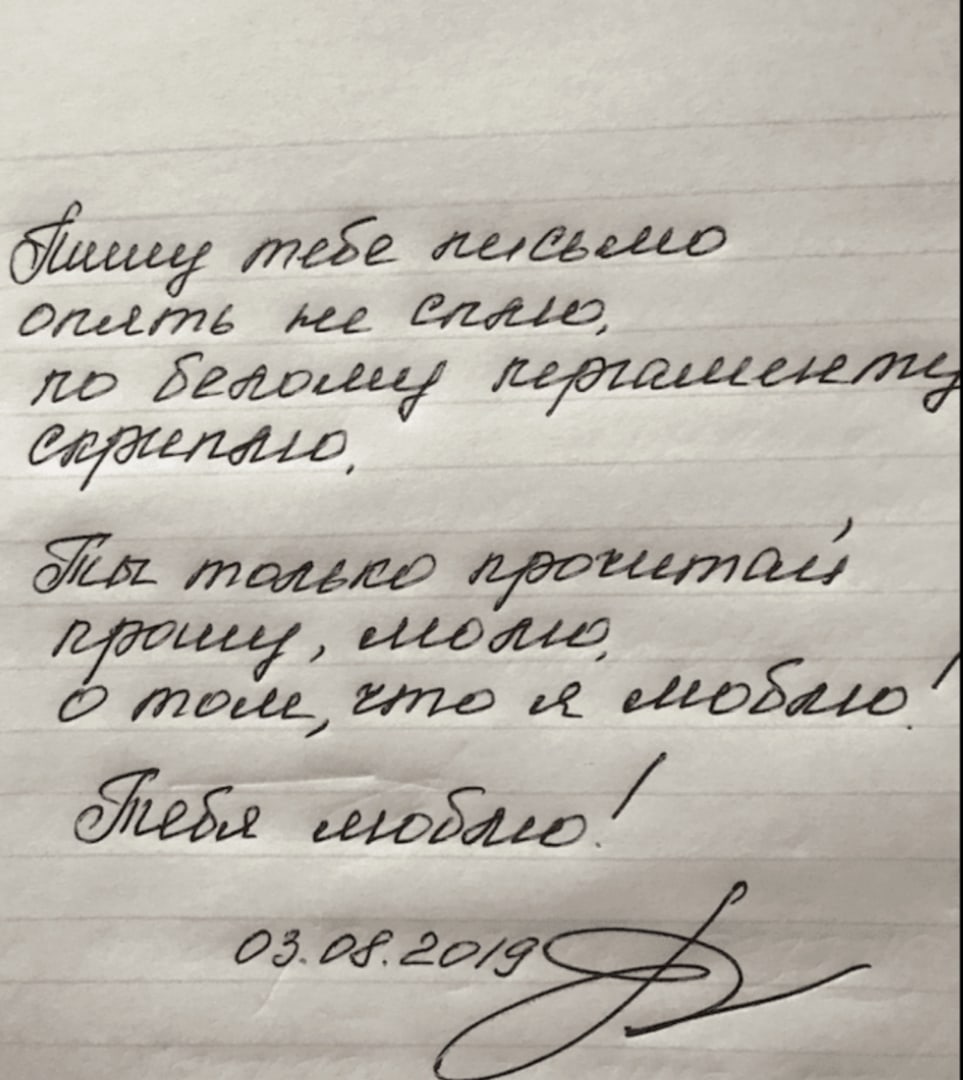 Пишу тебе письмо
опять не сплю,
по белому пергаменту
скриплю,
Ты только прочитай
прошу, молю,
о том, что я люблю!
Тебя люблю!
03.08.2019